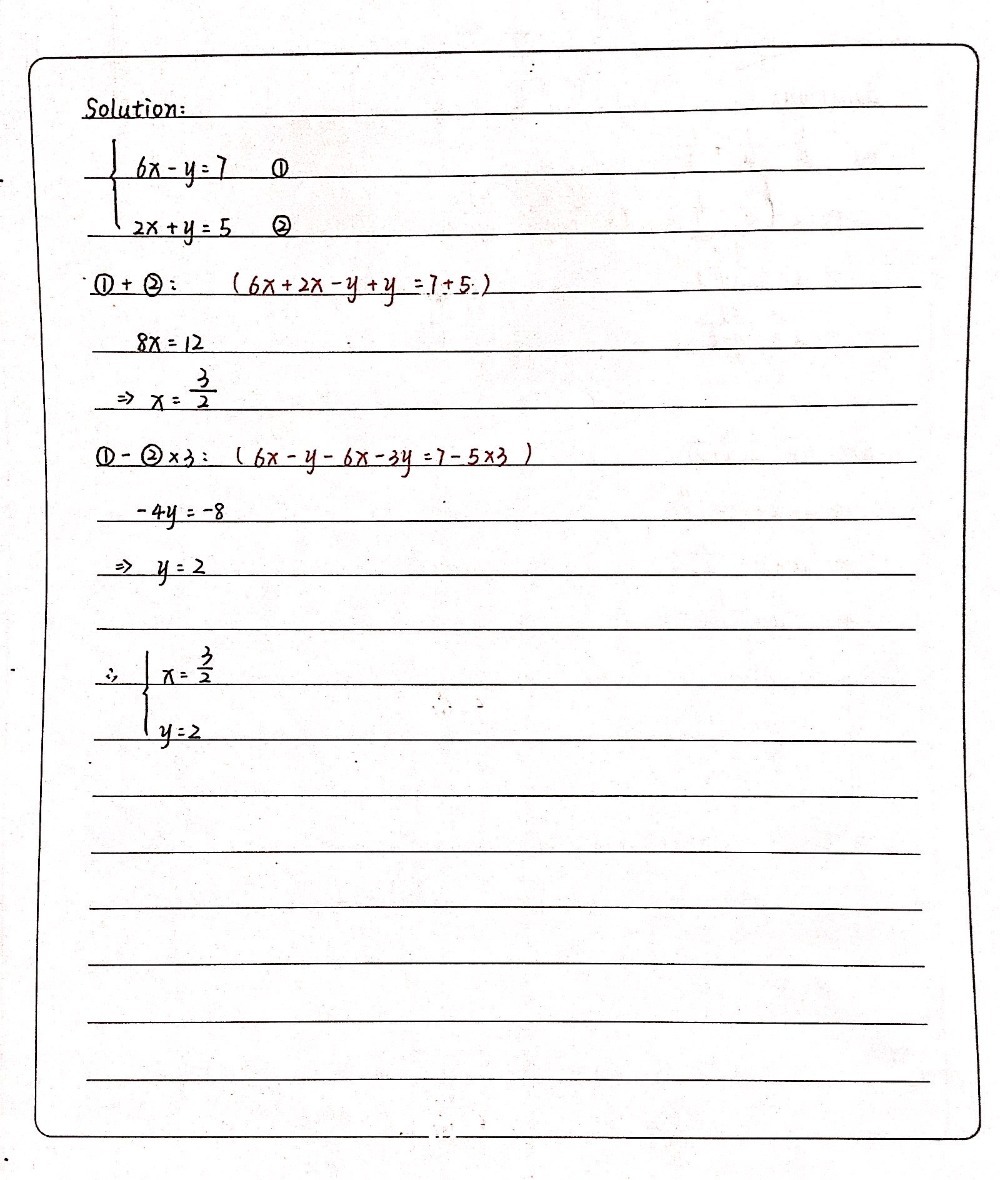 Solution:
6x - y = 7 ①
2x + y = 5 ②
① + ②: (6x + 2x - y + y = 7 + 5)
8x = 12
⇒ x = 3/2
① - ② × 3: (6x - y - 6x - 3y = 7 - 5 × 3)
-4y = -8
⇒ y = 2
∴ { x = 3/2
y = 2